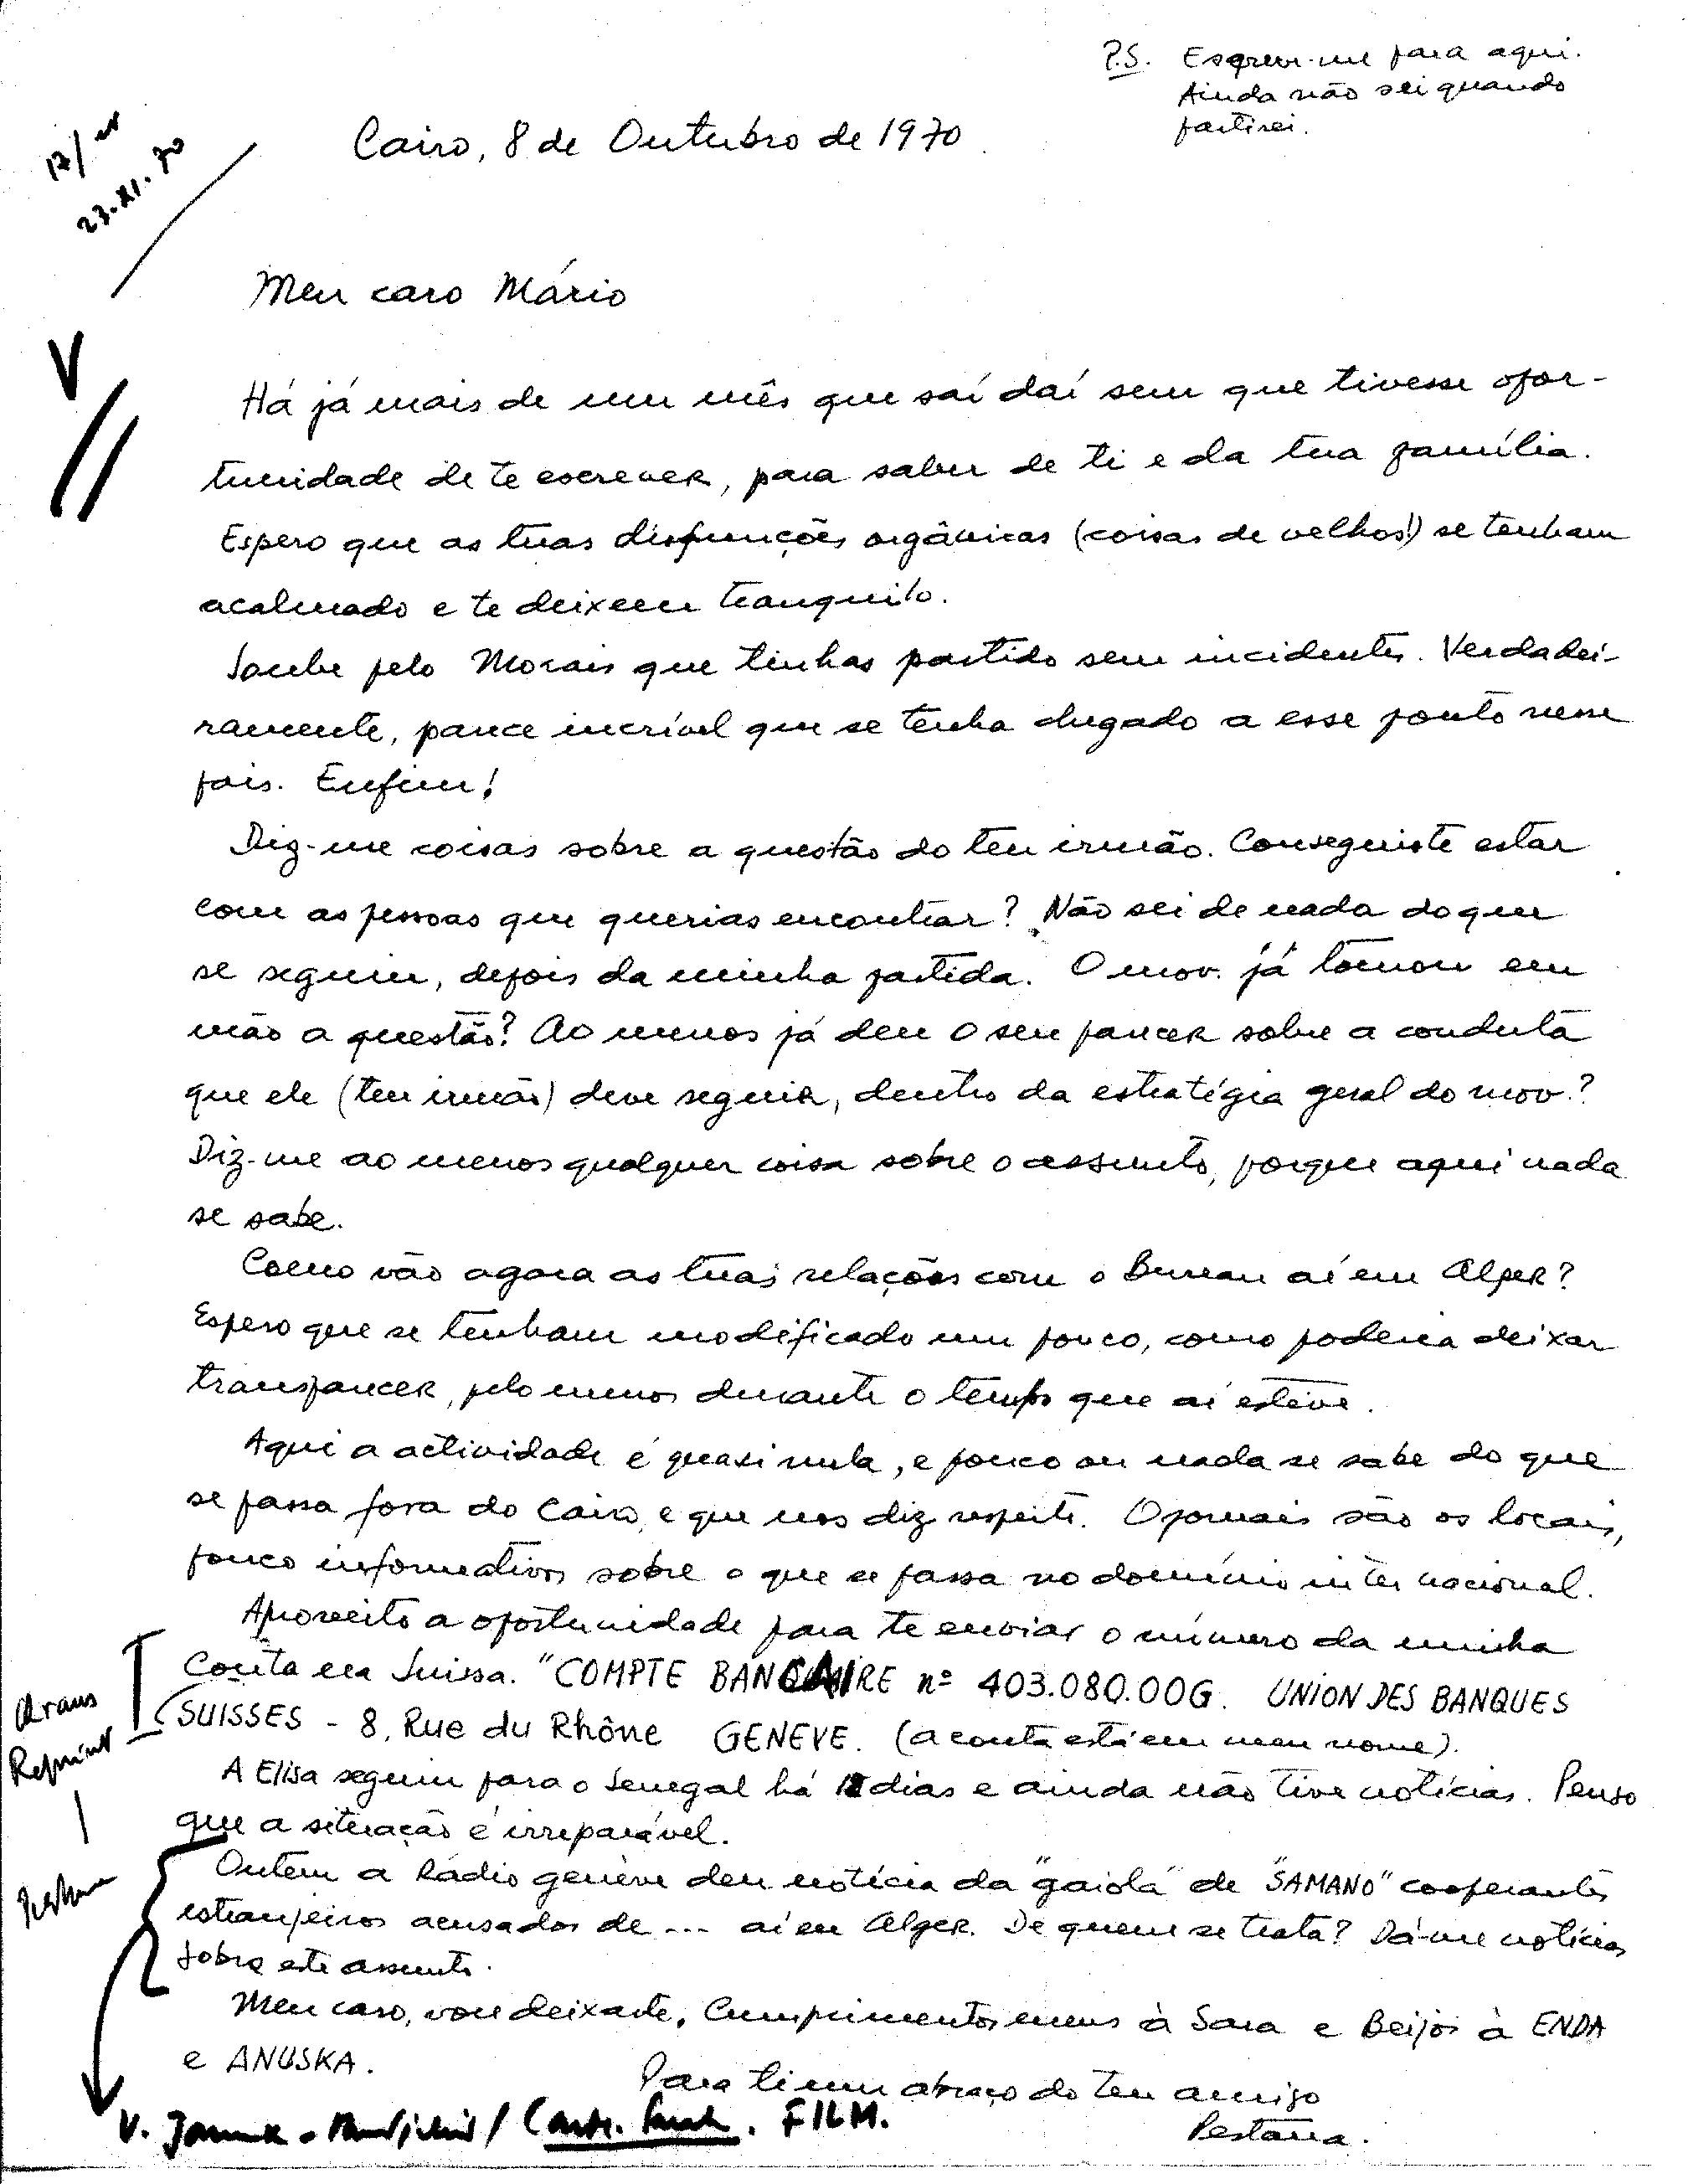 P.S. Escreve-me para aqui.
Ainda não sei quando
partirei.
23.XI.70
Cairo, 8 de Outubro de 1970.
Meu caro Mário
Há já mais de um mês que saí daí sem que tivesse opor-
tunidade de te escrever, para saber de ti e da tua família.
Espero que as tuas disfunções orgânicas (coisas de velhos!) se tenham
acalmado e te deixem tranquilo.
Soube pelo Morais que tinhas partido sem incidentes. Verdadei-
ramente, parece incrível que se tenha chegado a esse ponto nesse
país. Enfim!
Diz-me coisas sobre a questão do teu irmão. Conseguiste estar
com as pessoas que querias encontrar? Não sei de nada do que
se seguiu, depois da minha partida. O mov. já tomou em
mão a questão? Ao menos já deu o seu parecer sobre a conduta
que ele (teu irmão) deve seguir, dentro da estratégia geral do mov.?
Diz-me ao menos qualquer coisa sobre o assunto, porque aqui nada
se sabe.
Como vão agora as tuas relações com o Bureau aí em Alger?
Espero que se tenham modificado um pouco, como poderia deixar
transparecer, pelo menos durante o tempo que aí estive.
Aqui a actividade é quasi nula, e pouco ou nada se sabe do que
se passa fora do Cairo, e que nos diz respeito. O jornais são os locais,
pouco informativos sobre o que se passa no domínio internacional.
Aproveito a oportunidade para te enviar o número da minha
conta na Suissa. "COMPTE BANCAIRE nº 403.080.00G. UNION DES BANQUES
SUISSES - 8, Rue du Rhône GENEVE. (a conta está em meu nome).
A Elisa seguiu para o Senegal há dias e ainda não tive notícias. Penso
que a situação é irreparável.
Ontem a Rádio genève deu notícia da "gaiola" de "SAMANO" cooperantes
estranjeiros acusados de ... aí em Alger. De quem se trata? Dá-me notícias
sobre este assunto.
Meu caro, vou deixar-te. Cumprimentos meus à Sara e Beijos à ENDA
e ANUSKA.
Para ti um abraço do teu amigo
Pestana.
V. FILM.